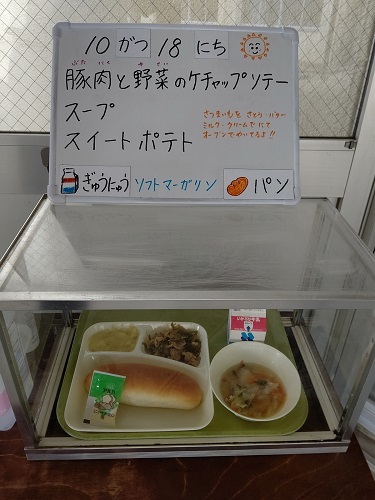 10 がつ 18 にち
ぶた にく や さい
豚肉と野菜のケチャップソテー
スープ
スイートポテト
さつまいもを さとう・バター
ミルク・クリームでにて
オーブンでやいてるよ!!
ぎゅうにゅう ソフトマーガリン パン